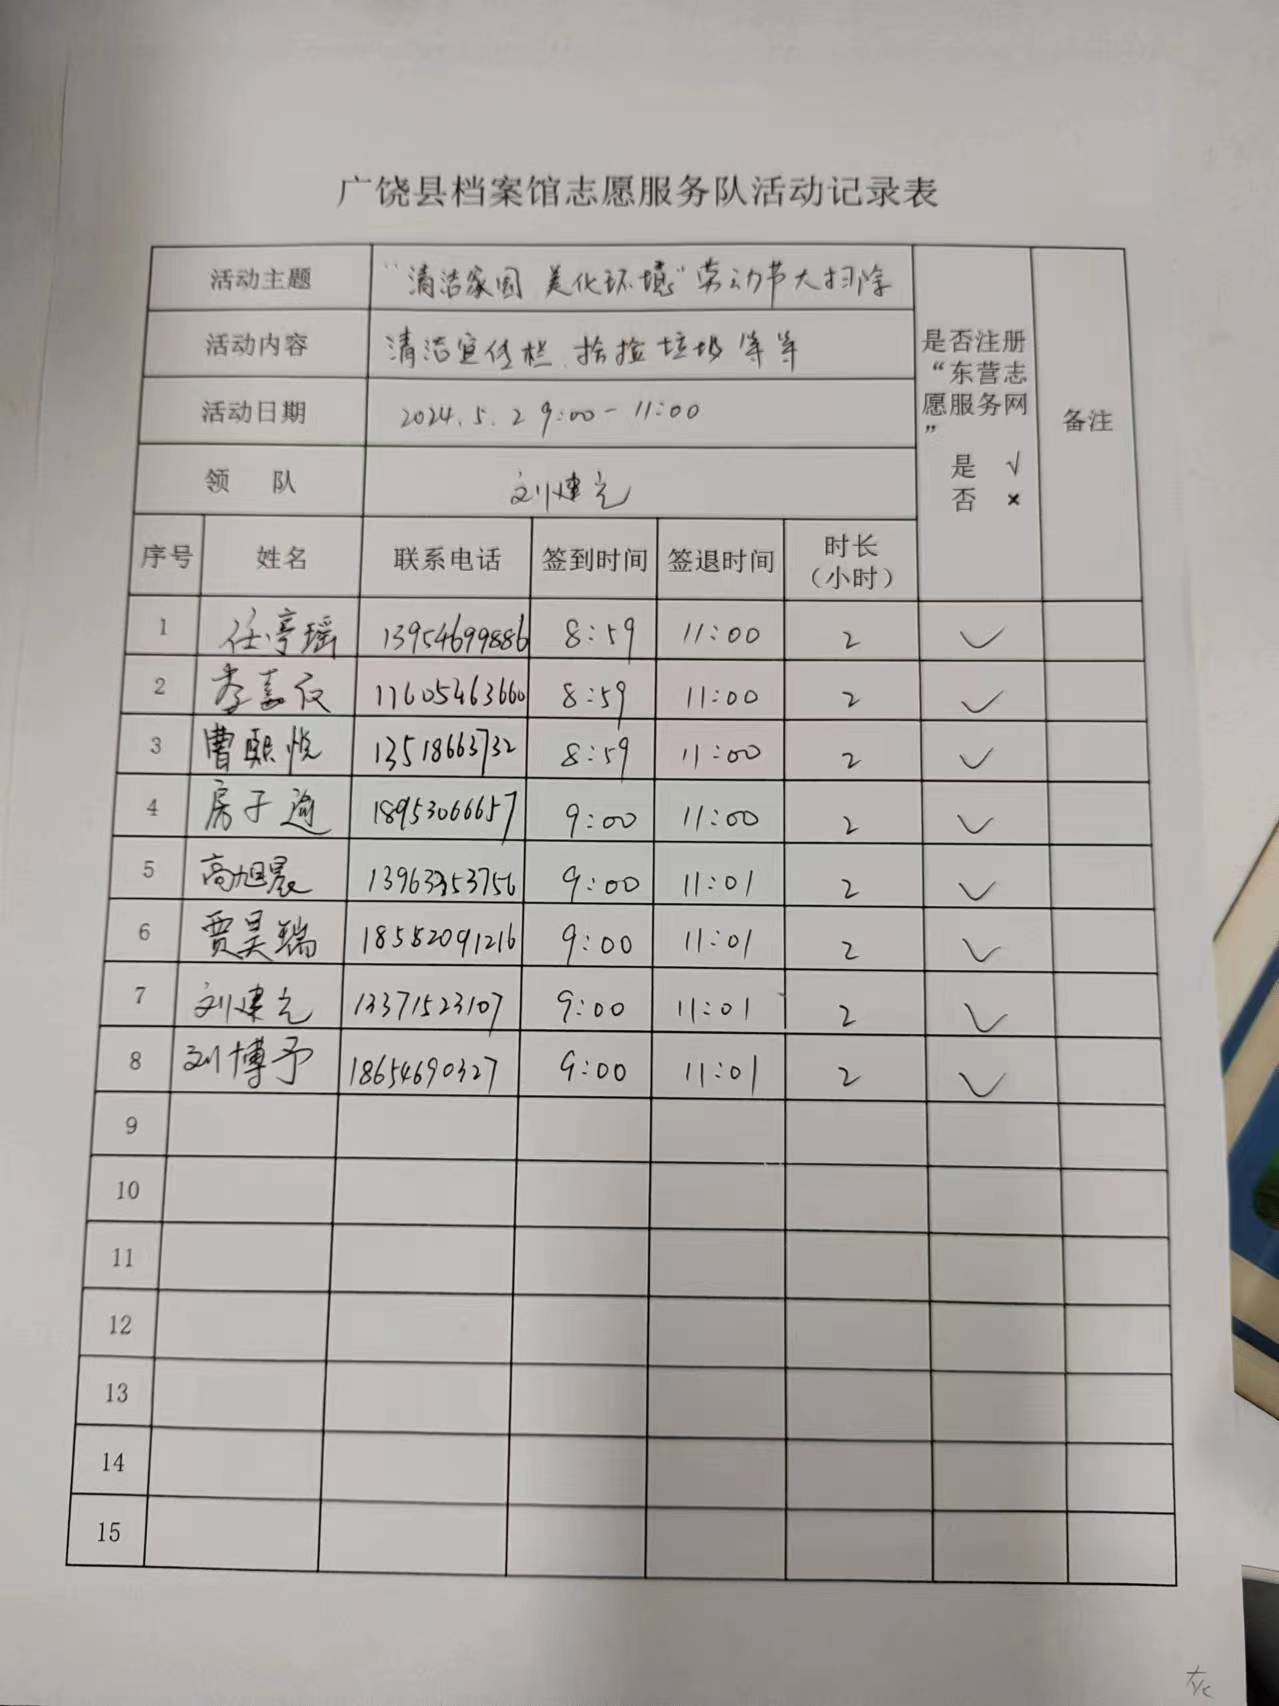 广饶县档案馆志愿服务队活动记录表
活动主题 “清洁家园 美化环境”劳动节大扫除
活动内容 清洁宣传栏、捡捡垃圾等等
活动日期 2024.5.2 9:00-11:00
领 队 刘建元
是否注册
“东营志
愿服务网
”
是 √
否 ×
备注
序号 姓名 联系电话 签到时间 签退时间 时长
(小时)
1 任亭瑶 13954699886 8:59 11:00 2 ✓
2 李嘉仪 17605463660 8:59 11:00 2 ✓
3 曹熙悦 13518663732 8:59 11:00 2 ✓
4 房子 18953066657 9:00 11:00 2 ✓
5 高旭晨 9:00 11:01 2 ✓
6 贾昊瑞 18582091216 9:00 11:01 2 ✓
7 刘建元 13371523107 9:00 11:01 2 ✓
8 刘博予 18654690327 9:00 11:01 2 ✓
9
10
11
12
13
14
15